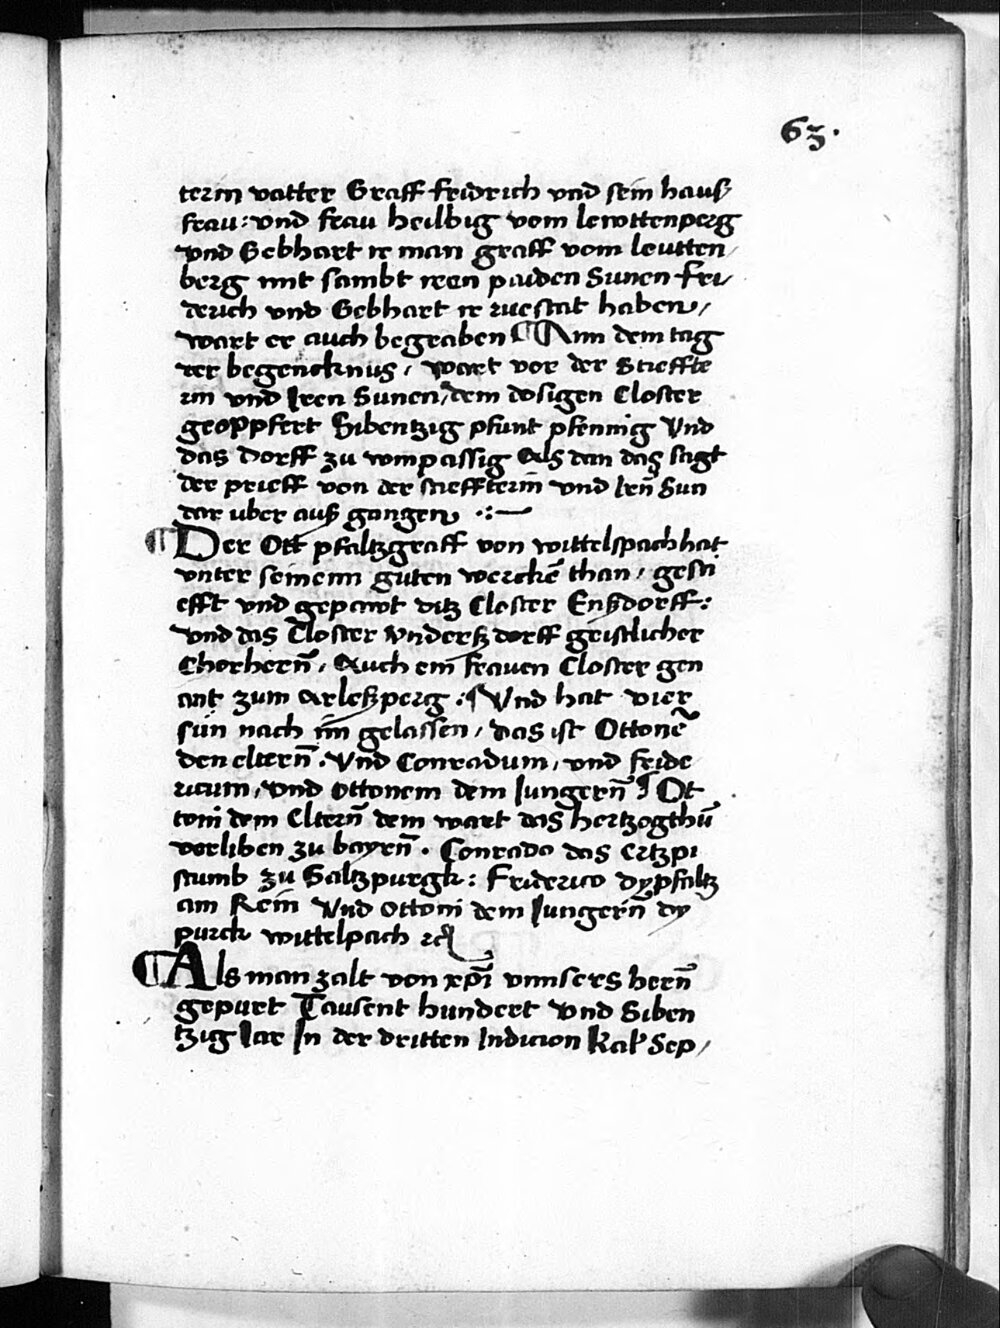 63.
terin vatter Graff fridrich vnd sein hauß
frau: vnd frau heilbig vom lewttenperg
vnd Gebhart ir man graff vom leutten/
berg mit sambt iren paiden Sunen fri/
derich vnd Gebhart ir ruestat haben/
wart er auch begraben ¶ Ann dem tag
rer begencknus/ wart vor der Stieffte
rin vnd Iren Sunen/ dem dosigen Closter
geoppfert Sibentzig pfunt pfennig Vnd
das dorff zu wmpassig Als dan das sagt
der prieff von der stieffterin vnd Irn̄ Sun
dar uber auß gangen ·:—
¶ Der Ott pfaltzgraff von wittelspach hat
vnter seinenn guten werckē than/ gesti
efft vnd gepawt ditz Closter Enßdorff:
vnd das Closter vnderß dorff geistlicher
Chorhern̄/ Auch ein frauen Closter gen
ant zum Arleßperg: ¶ Vnd hat vier
sün nach im gelassen/ das ist Ottonē
den eltern̄. Vnd Conradum/ vnd fride
ricum/ vnd ottonem dem Iungern̄ ¶ Ot
toni dem Eltern̄ dem wart das hertzogthū
verliben zu bayrn̄. Conrado das Ertzpi
stumb zu Saltzpurgk: friderico dy pfaltz
am Rein Vnd ottoni dem Iungern̄ dy
purck wittelpach ꝛc
¶ Als man zalt von xp̄i vnnsers hern̄
gepurt Tausent hundert vnd Siben
tzig Iar In der dritten Indicion Kal Sep/